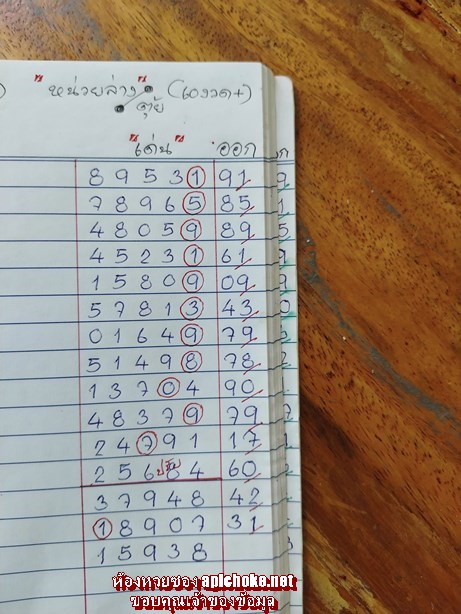 "หน่วยล่าง" (60งวด+)
ตุ้ย
"เด่น" ออก
8 9 5 3 1 91 9
7 8 9 6 5 85 1
4 8 0 5 9 89 5
4 5 2 3 1 61
1 5 8 0 9 09
5 7 8 1 3 43 0
0 1 6 4 9 79
5 1 4 9 8 78 2
1 3 7 0 4 90
4 8 3 7 9 79 7
2 4 7 9 1 17 1
ปรับ
2 5 6 8 4 60 2
3 7 9 4 8 42
1 8 9 0 7 31
1 5 9 3 8
ห้องหวยซอง apichoke.net
ขอบคุณเจ้าของข้อมูล